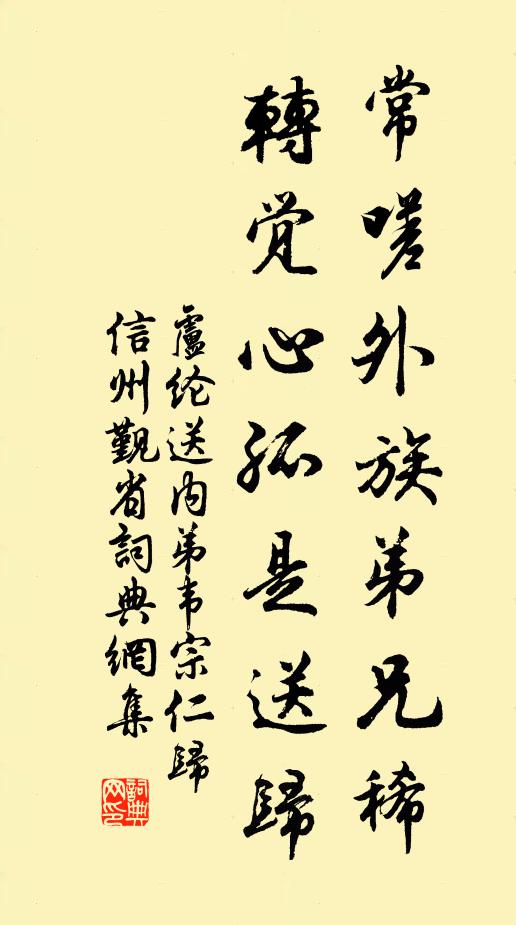 常嗟外族弟兄稀
轉覚心孤是送歸
盧纶送内弟韦宗仁歸
信州觐省詞典網集
詞典网印